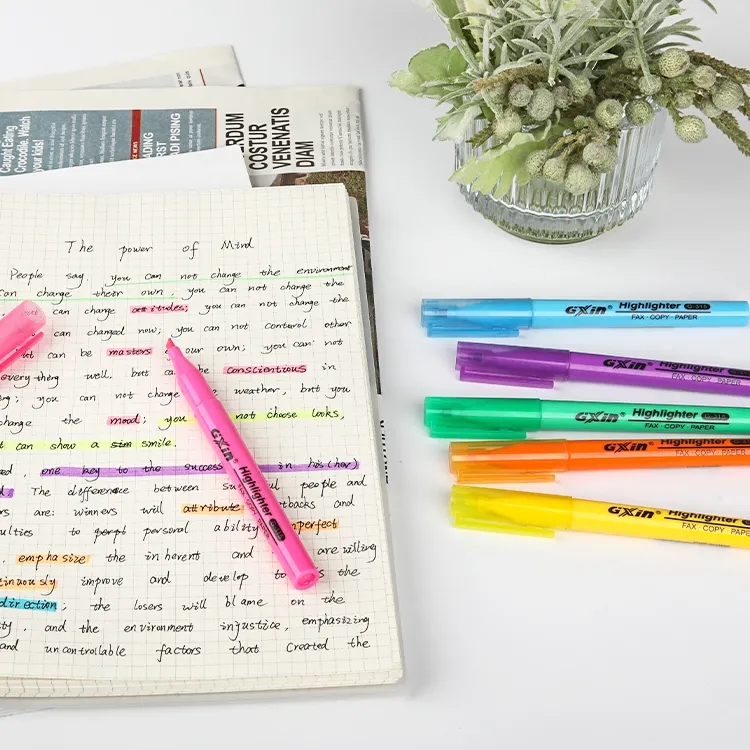 Caught Eating
Crocodile, Watch
your kids!
COSTUR
VENENATIS
DIAM
The power of Mind
People say, you can not change the environment
can change their own, you can not change the
can change attitudes; you can not change the
can changed now; you can not control other
can be masters our own; you can not
everything well, but can be conscientious in
you can not change weather, but you
change the mood; you not choose looks,
can show a sim smile.
one key to the success in his(her)
The difference between people and
are: winners will attribute and
to personal ability
emphasize the inherent and are willing
improve and develop to the
direction; the losers will blame on the
and the environment injustice, emphasizing
and uncontrollable factors that created the
GXin Highlighter
GXin Highlighter G-315
FAX · COPY · PAPER
GXin Highlighter
FAX · COPY · PAPER
GXin Highlighter G-315
FAX · COPY · PAPER
GXin Highlighter
FAX · COPY · PAPER
GXin Highlighter
FAX · COPY · PAPER